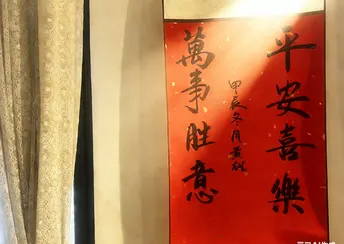 平安喜樂
萬事胜意
甲辰冬月